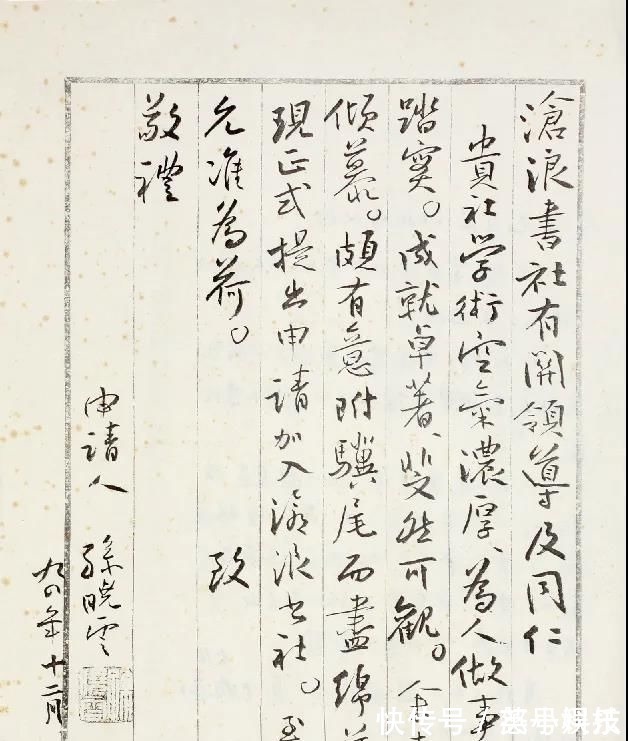 滄浪書社有関領導及同仁
貴社学術空氣濃厚、為人做事
踏實。成就卓著、斐然可觀。余
傾慕。頗有意附驥尾而盡綿薄
現正式提出申請加入滄浪书社。至
允准為荷。 致
敬禮
申請人 孫曉雲
九四年十二月
快传号